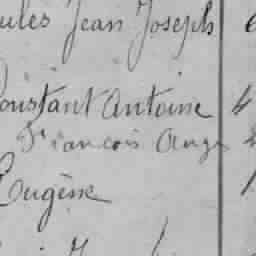 ules Jean Joseph 6
Constant Antoine 4
François Ange
Eugène 1